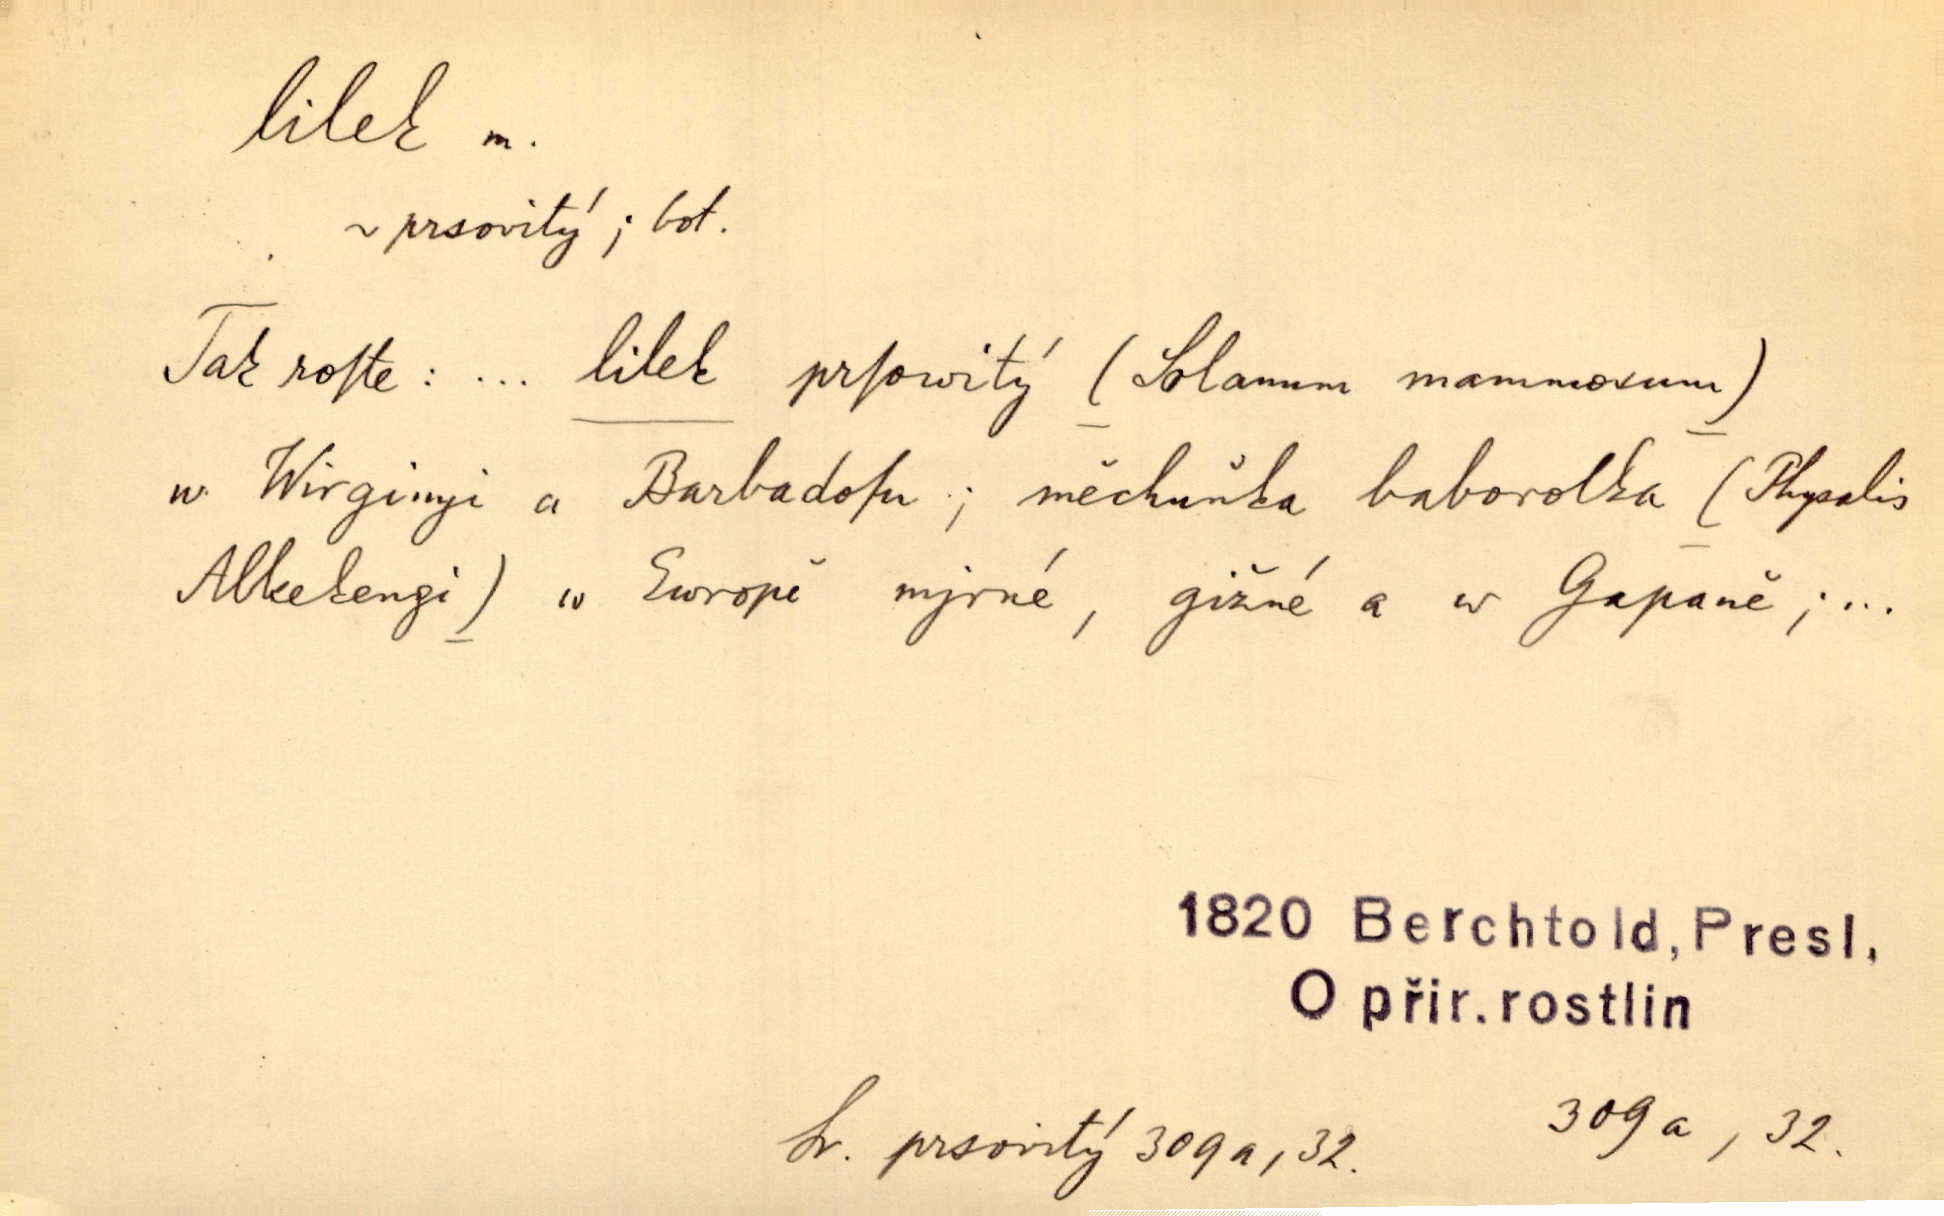 lilek m.
~ prsovitý; bot.
Tak roſte: ... lilek prſowitý (Solanum mammosum)
w Wirginyi a Barbadoſu; měchuňka baborolka (Physalis
Alkekengi) w Ewropě mjrné, gižné a w Gapaně; ...
1820 Berchtold, Presl,
O přir. rostlin
Sr. prsovitý 309a, 32.
309a, 32.